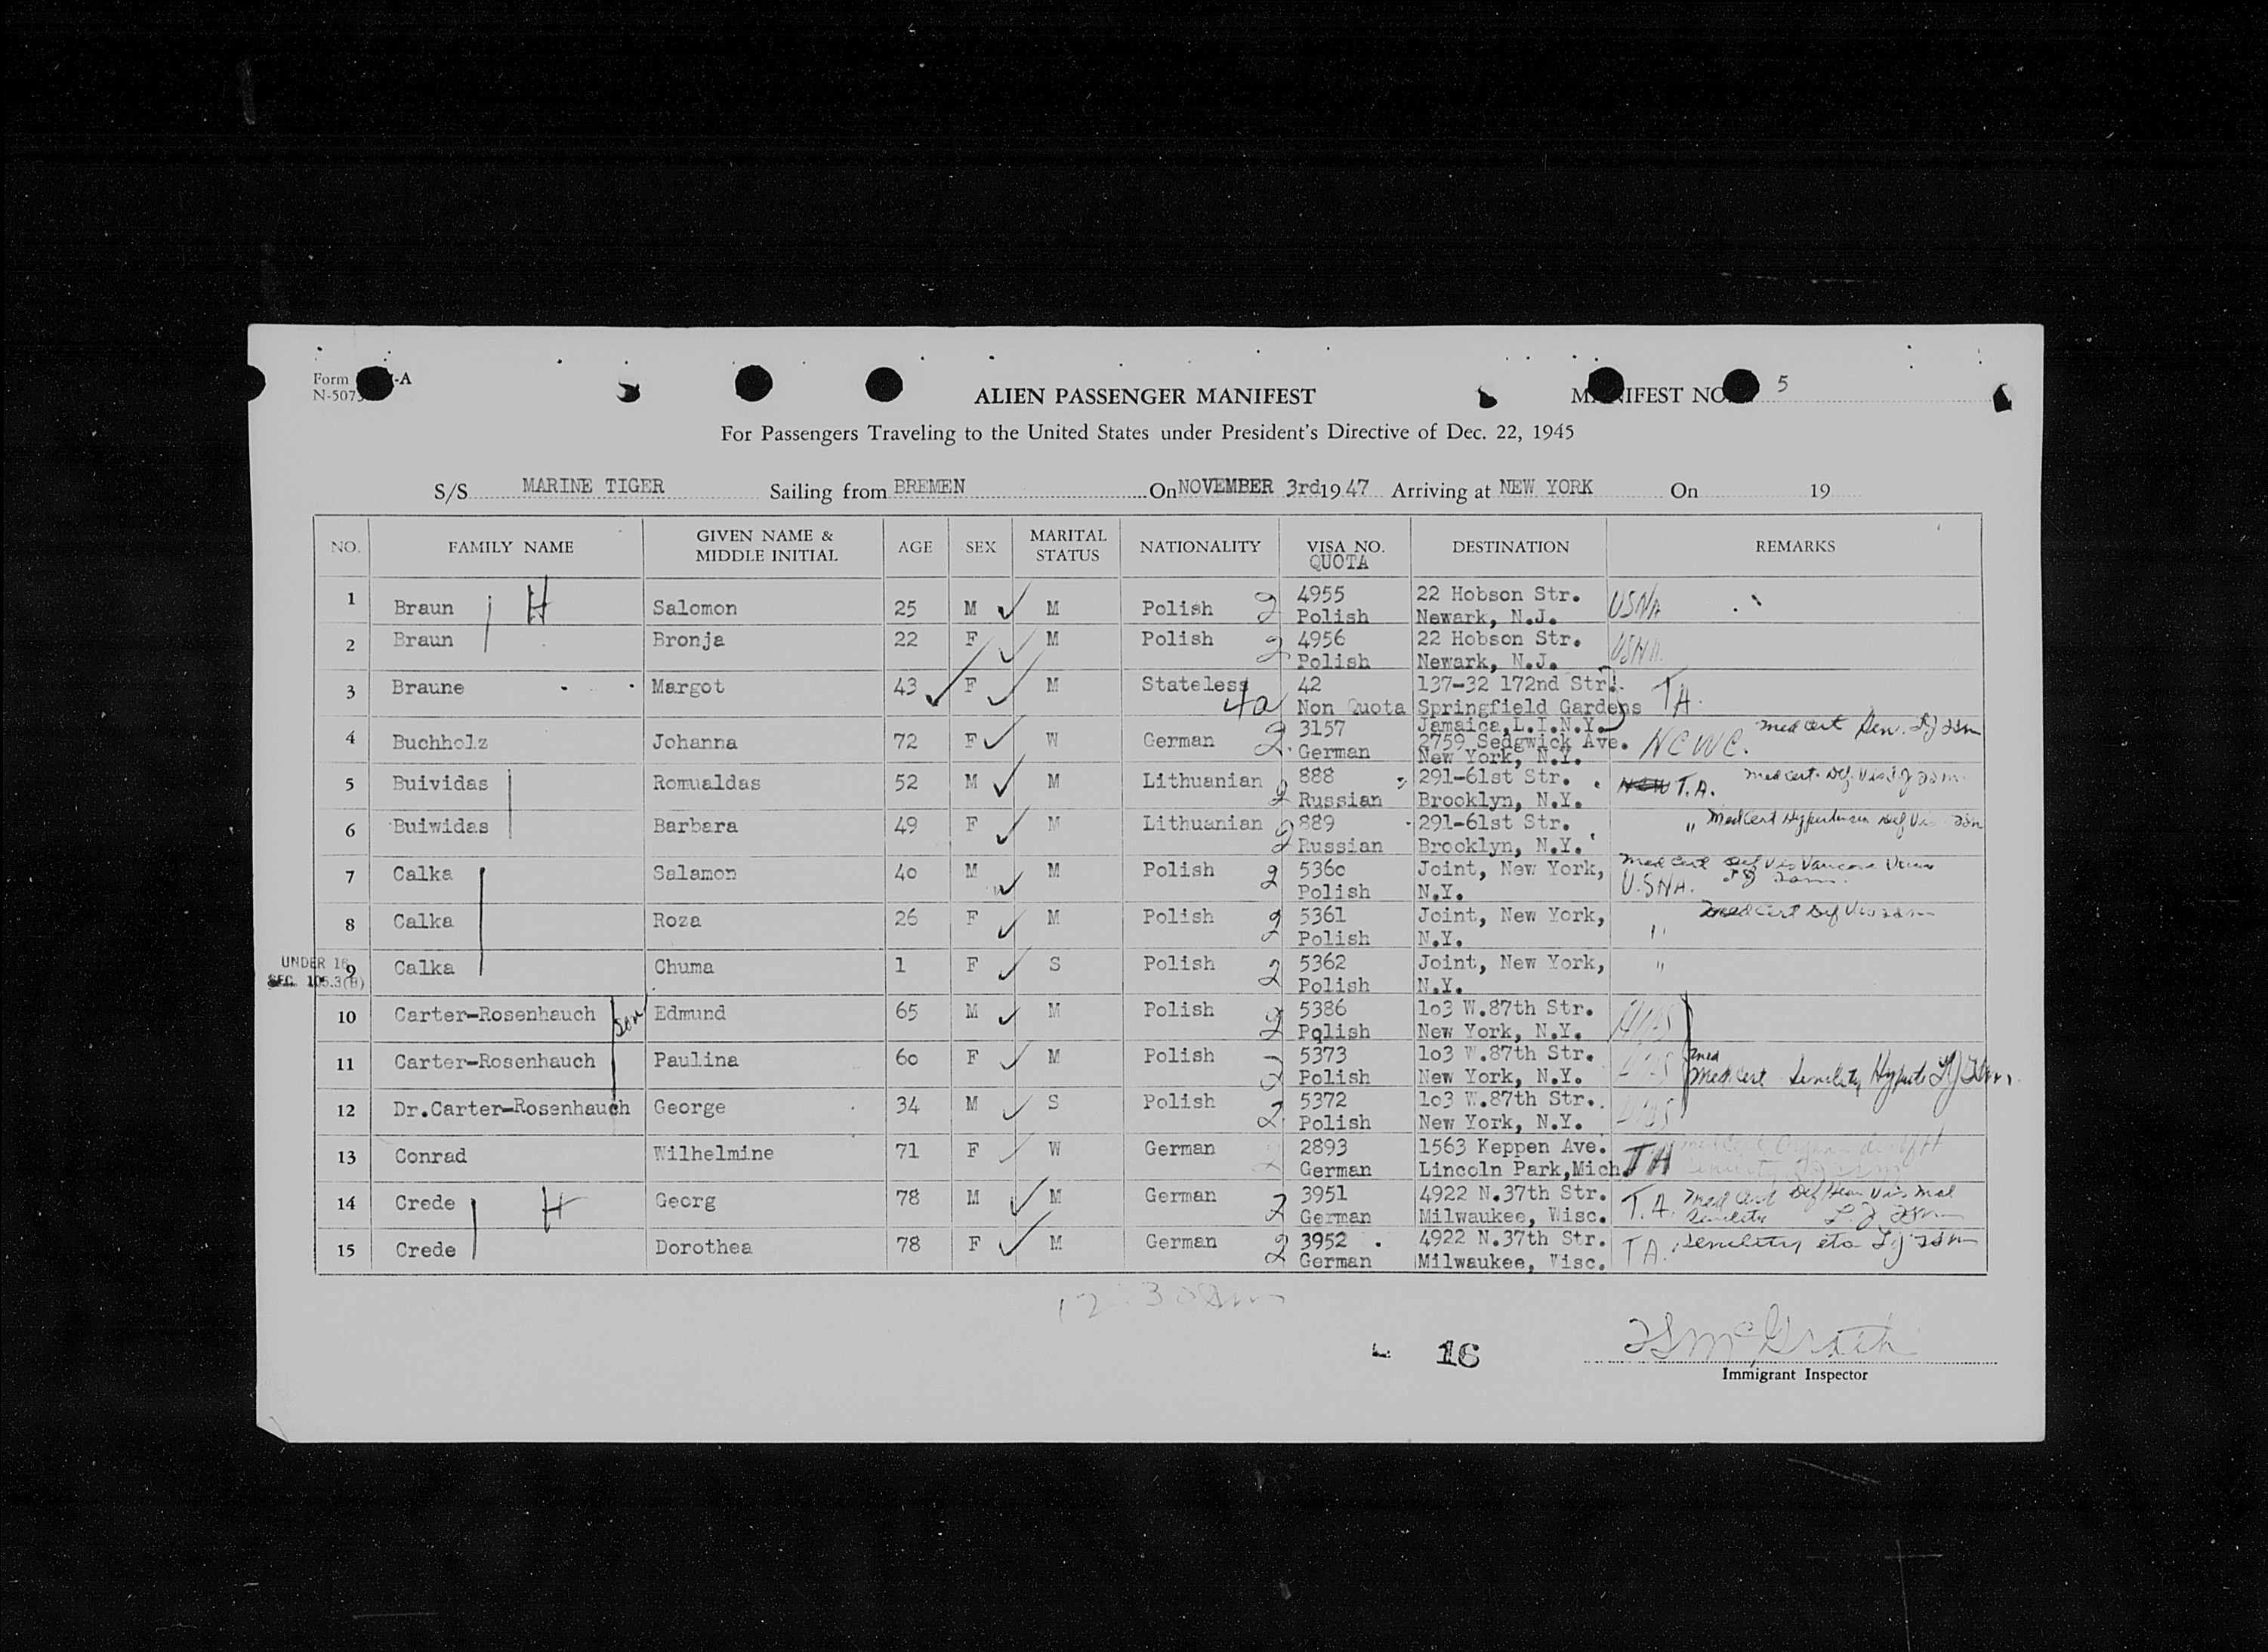 Form -A
N-507
ALIEN PASSENGER MANIFEST
MANIFEST NO. 5
For Passengers Traveling to the United States under President's Directive of Dec. 22, 1945
S/S MARINE TIGER Sailing from BREMEN On NOVEMBER 3rd 1947 Arriving at NEW YORK On 19
NO. FAMILY NAME GIVEN NAME & MIDDLE INITIAL AGE SEX MARITAL STATUS NATIONALITY VISA NO. QUOTA DESTINATION REMARKS
1 Braun H Salomon 25 M M Polish 2 4955 22 Hobson Str. USNA
Polish Newark, N.J.
2 Braun Bronja 22 F M Polish 2 4956 22 Hobson Str. USNA
Polish Newark, N.J.
3 Braune Margot 43 F M Stateless 42 137-32 172nd Str. TA.
4a Non Quota Springfield Gardens
Jamaica,L.I.N.Y.
4 Buchholz Johanna 72 F W German 2 3157 2759 Sedgwick Ave. NCWC. med cert Sen.
German New York, N.Y.
5 Buividas Romualdas 52 M M Lithuanian 2 888 291-61st Str. T.A. med cert. Def. Vis
Russian Brooklyn, N.Y.
6 Buiwidas Barbara 49 F M Lithuanian 2 889 291-61st Str. " Med Cert Hypertension Def Vis
Russian Brooklyn, N.Y.
7 Calka Salamon 40 M M Polish 2 536o Joint, New York, med cert Def Vis
Polish N.Y. U.SNA.
8 Calka Roza 26 F M Polish 2 5361 Joint, New York, " med cert Def Vis
Polish N.Y.
UNDER 16
SEC. 105.3(B)
9 Calka Chuma 1 F S Polish 2 5362 Joint, New York, "
Polish N.Y.
10 Carter-Rosenhauch son Edmund 65 M M Polish 2 5386 1o3 W.87th Str. HIAS
Polish New York, N.Y.
11 Carter-Rosenhauch Paulina 6o F M Polish 2 5373 1o3 W.87th Str. med
Polish New York, N.Y. Med. Cert Senility Hypert
12 Dr.Carter-Rosenhauch George 34 M S Polish 2 5372 1o3 W.87th Str.
Polish New York, N.Y.
13 Conrad Wilhelmine 71 F W German 2 2893 1563 Keppen Ave. TA
German Lincoln Park,Mich.
14 Crede H Georg 78 M M German 2 3951 4922 N.37th Str. T.A. Med Cert Def Hear Vis
German Milwaukee, Wisc. Senility
15 Crede Dorothea 78 F M German 2 3952 4922 N.37th Str. TA. Senility etc
German Milwaukee, Wisc.
12:30
16
McGrath
Immigrant Inspector